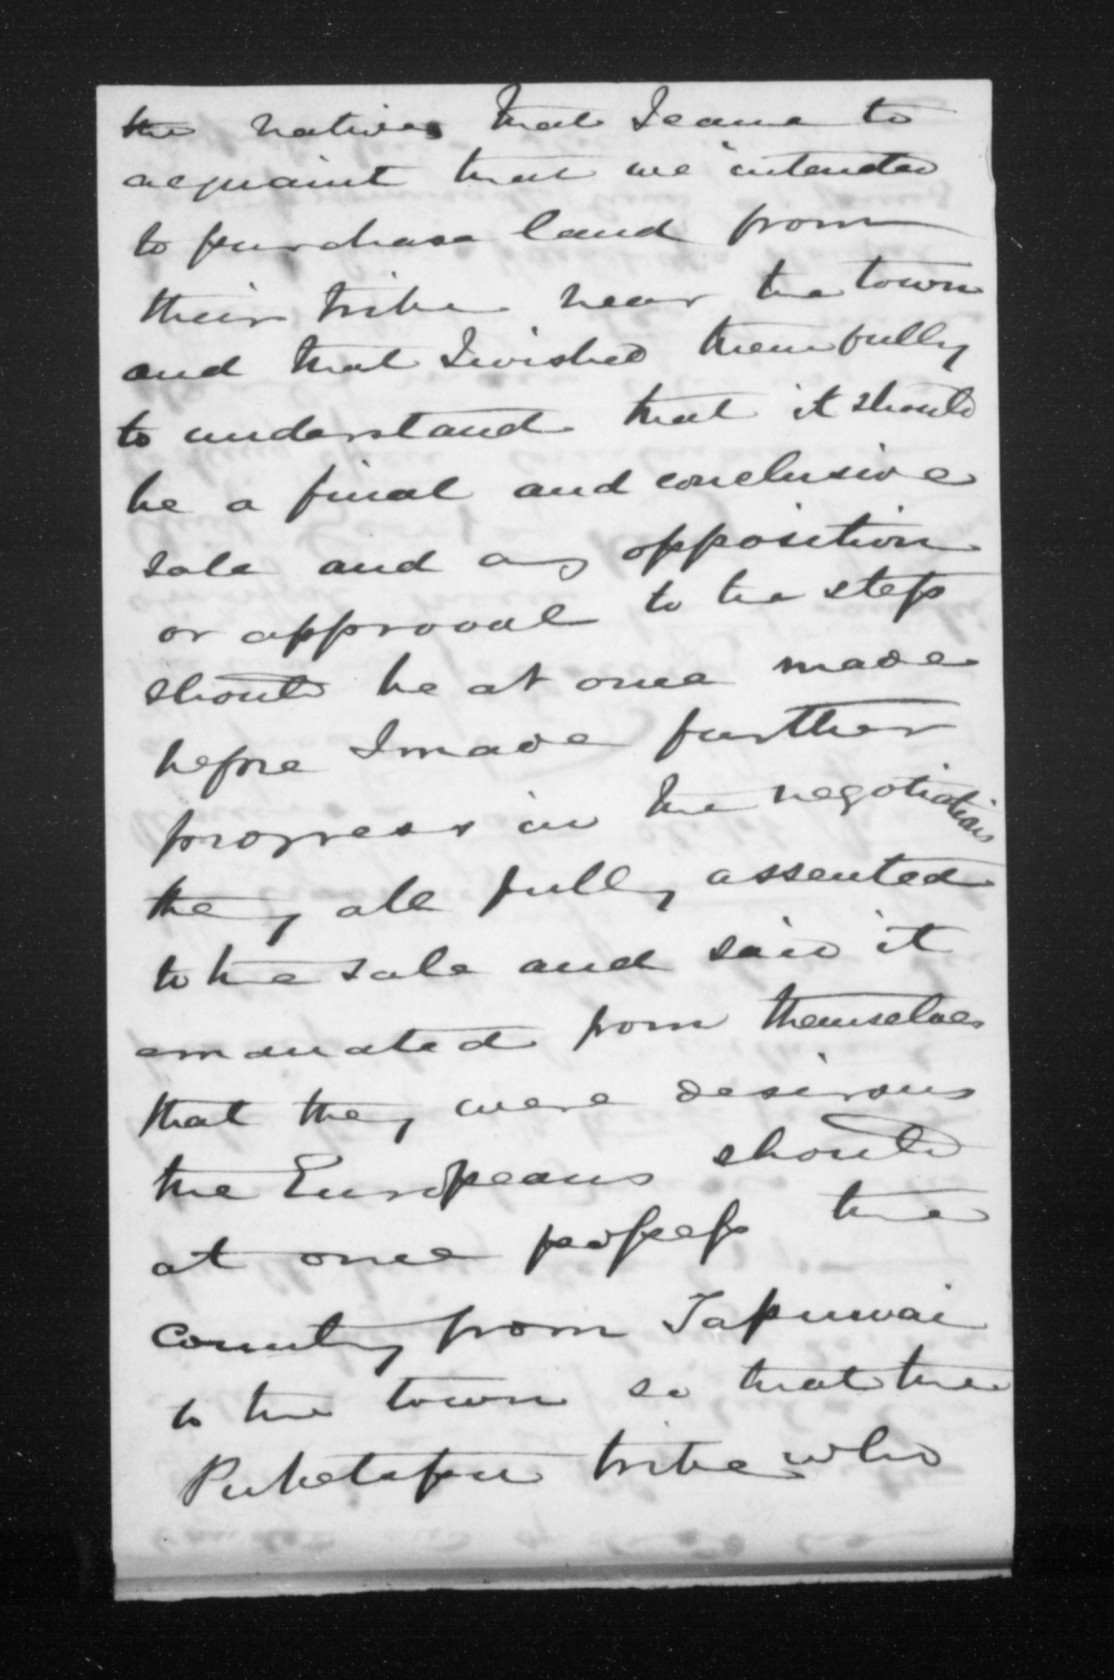 the natives that I came to
acquaint that we intended
to purchase land from
their tribe near the town
and that I wished them fully
to understand that it should
be a final and conclusive
sale and any opposition
or approval to the steps
should be at once made
before I made further
progress in the negotiations
they all fully assented
to the sale and said it
emanated from themselves
that they were desirous
the Europeans should
at once possess the
country from Tapuwai
to the town so that the
Puketapu tribe who